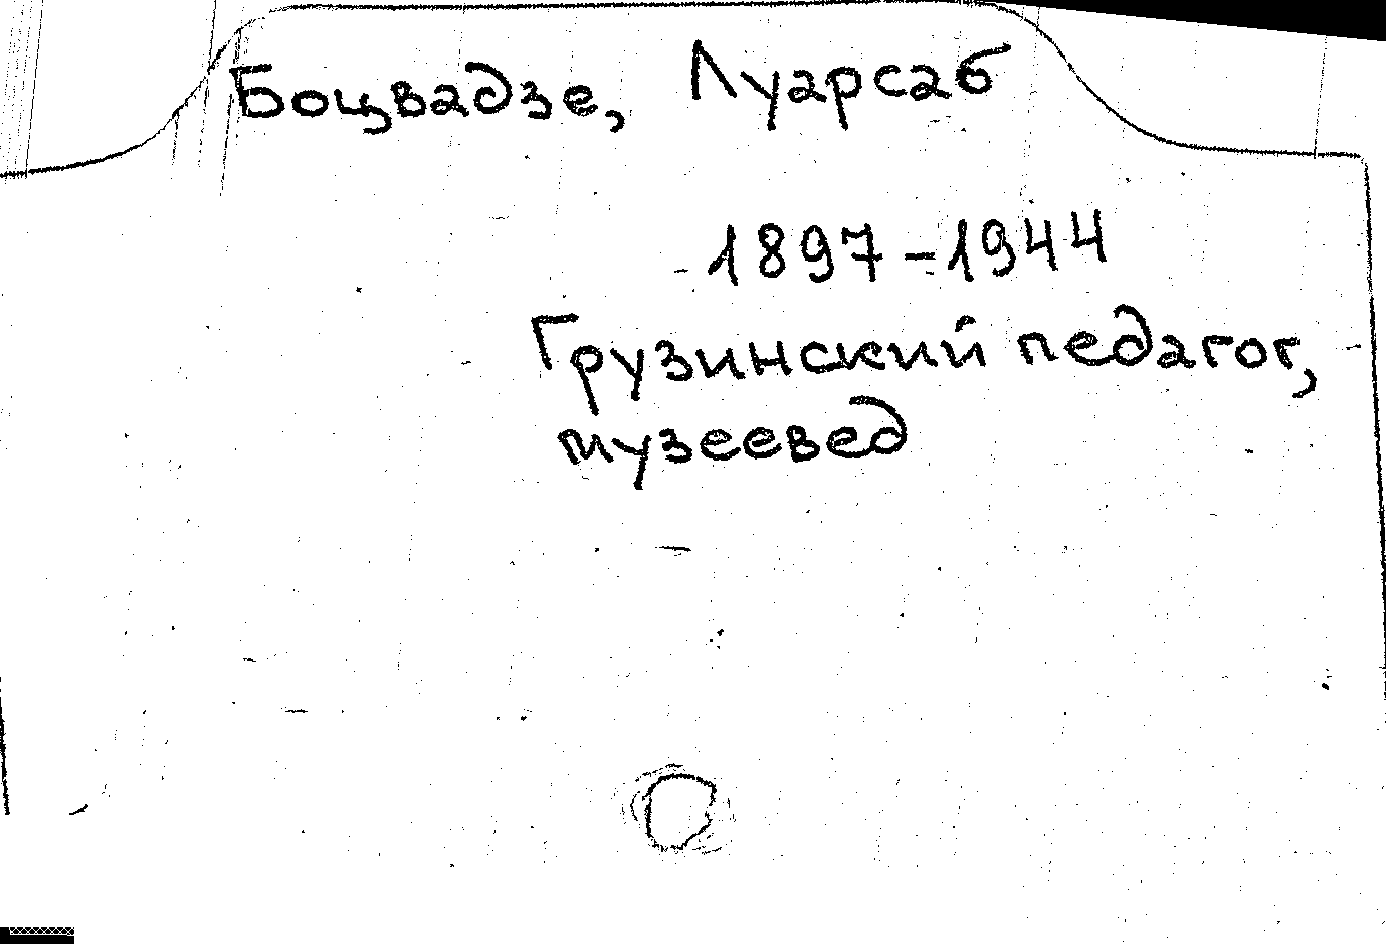 Боцвадзе, Луарсаб
1897-1944
Грузинский педагог,
музеевед